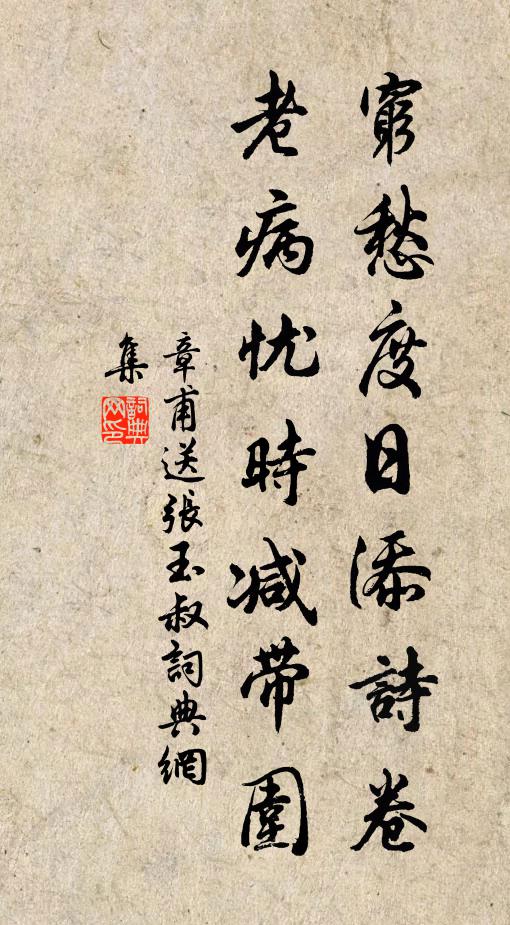 窮愁度日添詩卷
老病忧時減帶圍
章甫送張玉叔詞典網
集
詞典
网印